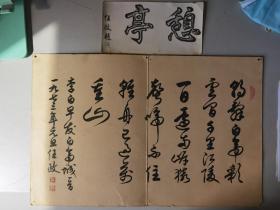 憩亭
任政題
朝辭白帝彩
雲間千里江陵
一日還兩岸猿
聲啼不住
輕舟已過萬
重山
李白早發白帝城
一九七三年元旦任政